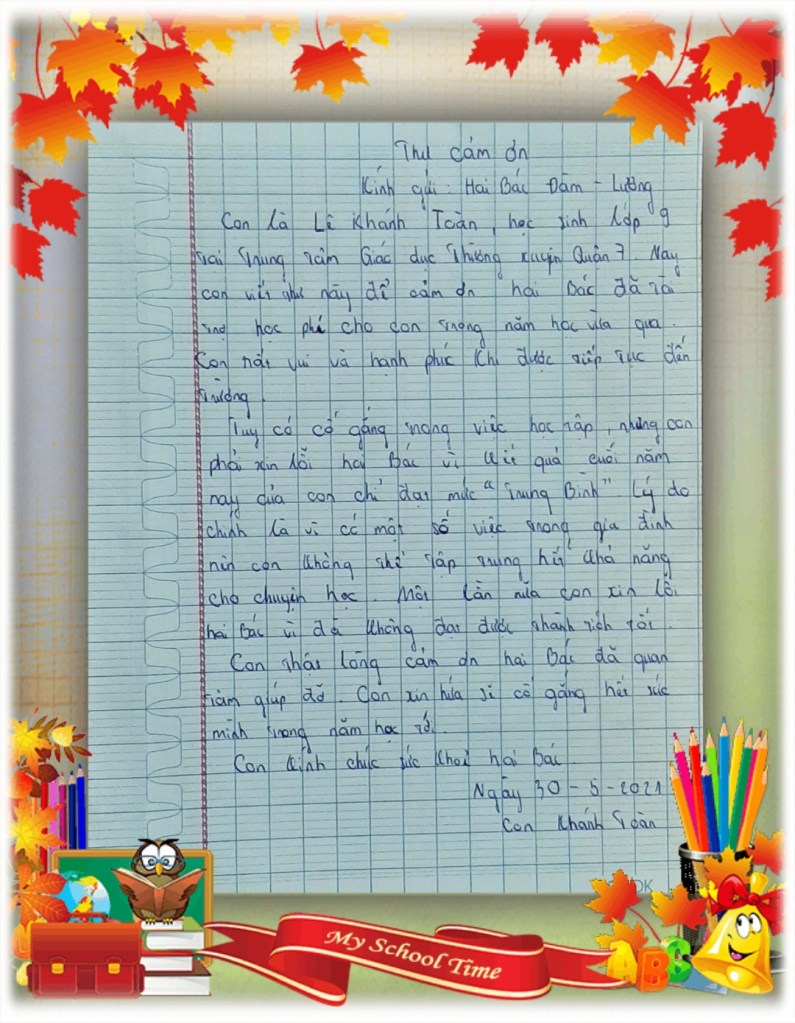 Thư cảm ơn
Kính gửi : Hai Bác Đàm - Lương
Con là Lê Khánh Toàn, học sinh lớp 9
tại Trung tâm Giác dục Thường xuyên Quận 7. Nay
con viết thư này để cảm ơn hai Bác đã tài
trợ học phí cho con trong năm học vừa qua.
Con rất vui và hạnh phúc khi được tiếp tục đến
trường.
Tuy có cố gắng trong việc học tập, nhưng con
phải xin lỗi hai Bác vì kết quả cuối năm
nay của con chỉ đạt mức "Trung Bình". Lý do
chính là vì có một số việc trong gia đình
nên con không thể tập trung hết khả năng
cho chuyện học. Một lần nữa con xin lỗi
hai Bác vì đã không đạt được thành tích tốt.
Con thật lòng cảm ơn hai Bác đã quan
tâm giúp đỡ. Con xin hứa sẽ cố gắng hết sức
mình trong năm học tới.
Con kính chúc sức khoẻ hai Bác.
Ngày 30 - 5 - 2021
Con Khánh Toàn
My School Time
ABC